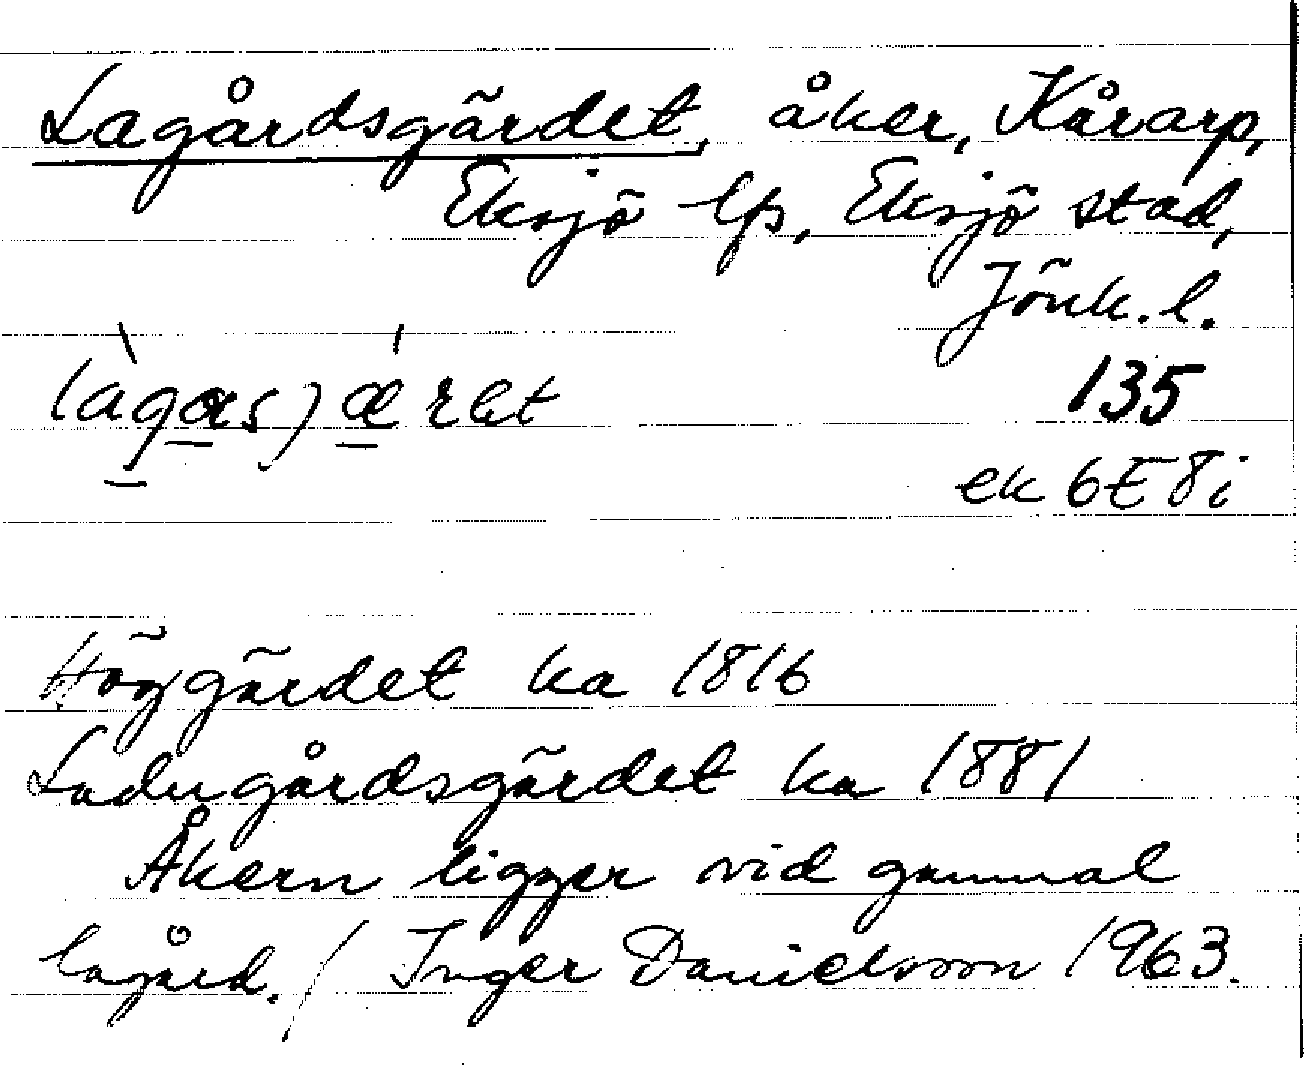 Lagårdsgärdet, åker, Kårarp,
Eksjö lfs, Eksjö stad,
Jönk. l.
135
ek 6E 8i
Höggärdet ka 1816
Ladugårdsgärdet ka 1881
Åkern ligger vid gammal
lagård. / Inger Danielsson 1963.